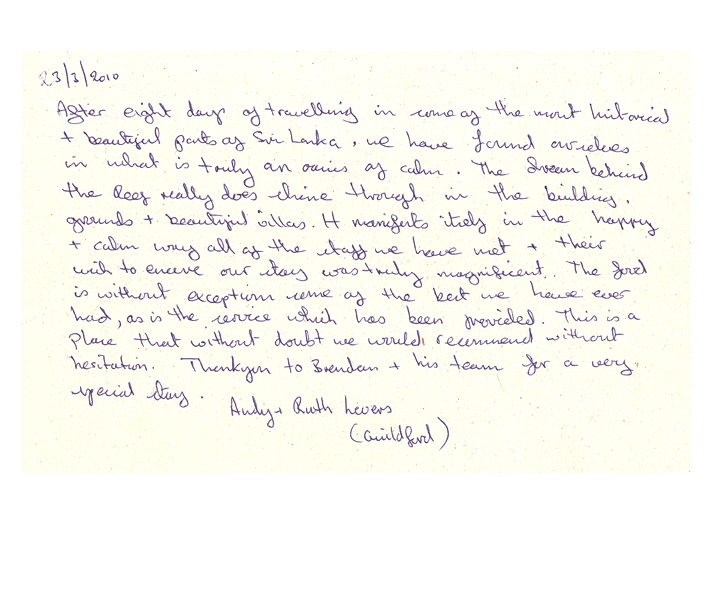 23/3/2010
After eight days of travelling in some of the most historical
+ beautiful parts of Sri Lanka, we have found ourselves
in what is truly an oasis of calm. The dream behind
the Reef really does shine through in the building,
grounds + beautiful villas. It manifests itself in the happy
+ calm way all of the staff we have met + their
wish to ensure our stay was truly magnificent. The food
is without exception some of the best we have ever
had, as is the service which has been provided. This is a
place that without doubt we would recommend without
hesitation. Thankyou to Brendan + his team for a very
special stay.
Andy + Ruth Levers
(Guildford)